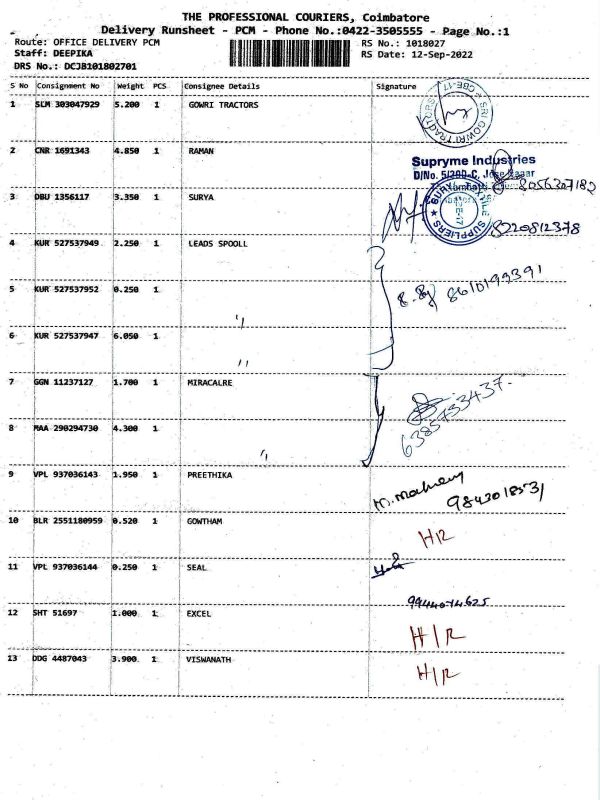 THE PROFESSIONAL COURIERS, Coimbatore
Delivery Runsheet - PCM - Phone No.:0422-3505555 - Page No.:1
Route: OFFICE DELIVERY PCM RS No.: 1018027
Staff: DEEPIKA RS Date: 12-Sep-2022
DRS No.: DCJB101802701
S No Consignment No Weight PCS Consignee Details Signature
1 SLM 303047929 5.200 1 GOWRI TRACTORS
SRI GOWRI TRACTORS CBE-17
2 CNR 1691343 4.850 1 RAMAN
Supryme Industries
D/No. 5/200-C, Jose Bazar
8056307182
3 DBU 1356117 3.350 1 SURYA
SUPPLIERS
8220812378
4 KUR 527537949 2.250 1 LEADS SPOOLL
5 KUR 527537952 0.250 1 "
8610199391
6 KUR 527537947 6.050 1 "
7 GGN 11237127 1.700 1 MIRACALRE
6385733437
8 MAA 290294730 4.300 1 "
9 VPL 937036143 1.950 1 PREETHIKA
9843018531
10 BLR 2551180959 0.520 1 GOWTHAM
H/R
11 VPL 937036144 0.250 1 SEAL
9944074625
12 SHT 51697 1.000 1 EXCEL
H/R
13 DDG 4487043 3.900 1 VISWANATH
H/R